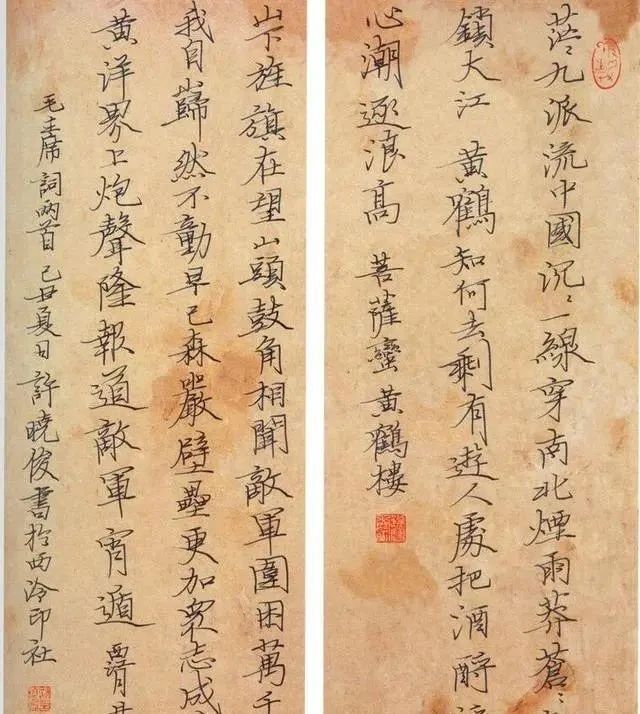 茫〻九派流中國沉〻一線穿南北煙雨莽蒼〻
鎖大江 黃鶴知何去剩有遊人處把酒酹
心潮逐浪高 菩薩蠻黃鶴樓
山下旌旗在望山頭鼓角相聞敵軍圍困萬千
我自巋然不動早已森嚴壁壘更加衆志成
黃洋界上炮聲隆報道敵軍宵遁 西江月
毛主席詞兩首 己丑夏日許曉俊書於西泠印社